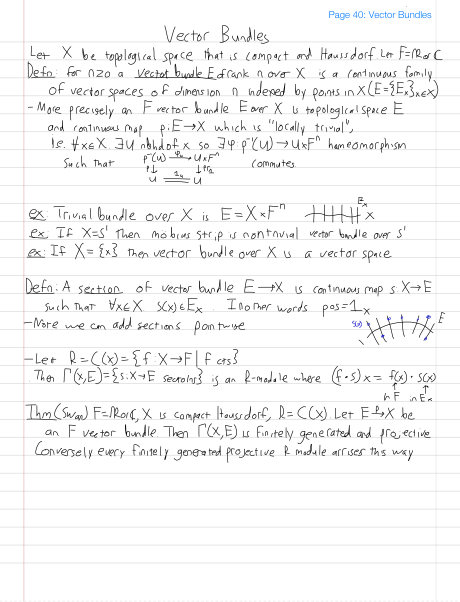 Page 40: Vector Bundles
Vector Bundles
Let X be topological space that is compact and Haussdorf. Let F=ℝ or ℂ
Defn: for n≥0 a vector bundle E of rank n over X is a continuous family
of vector spaces of dimension n indexed by points in X (E={E_x}_{x∈X})
- More precisely an F vector bundle E over X is topological space E
and continuous map p:E→X which is "locally trivial",
i.e. ∀x∈X ∃U nbhd of x so ∃φ: p⁻¹(U)→U×Fⁿ homeomorphism
such that p⁻¹(U) →^{φ_u} U×Fⁿ commutes.
p↓ ↓pr₁
U =^{1_u} U
ex: Trivial bundle over X is E=X×Fⁿ E_x X
ex: If X=S¹ then mobius strip is nontrivial vector bundle over S¹
ex: If X={x} then vector bundle over X is a vector space
Defn: A section of vector bundle E→X is continuous map s:X→E
such that ∀x∈X s(x)∈E_x. In other words p∘s=1_x
- Note we can add sections pointwise s(x) E X
- Let R=C(X)={f:X→F| f cts}
Then Γ(X,E)={s:X→E sections} is an R-module where (f·s)x = f(x)·s(x)
in F in E_x
Thm (Swan) F=ℝ or ℂ, X is compact Haussdorf, R=C(X) Let E→^{p}X be
an F vector bundle. Then Γ(X,E) is finitely generated and projective
Conversely every finitely generated projective R module arrises this way